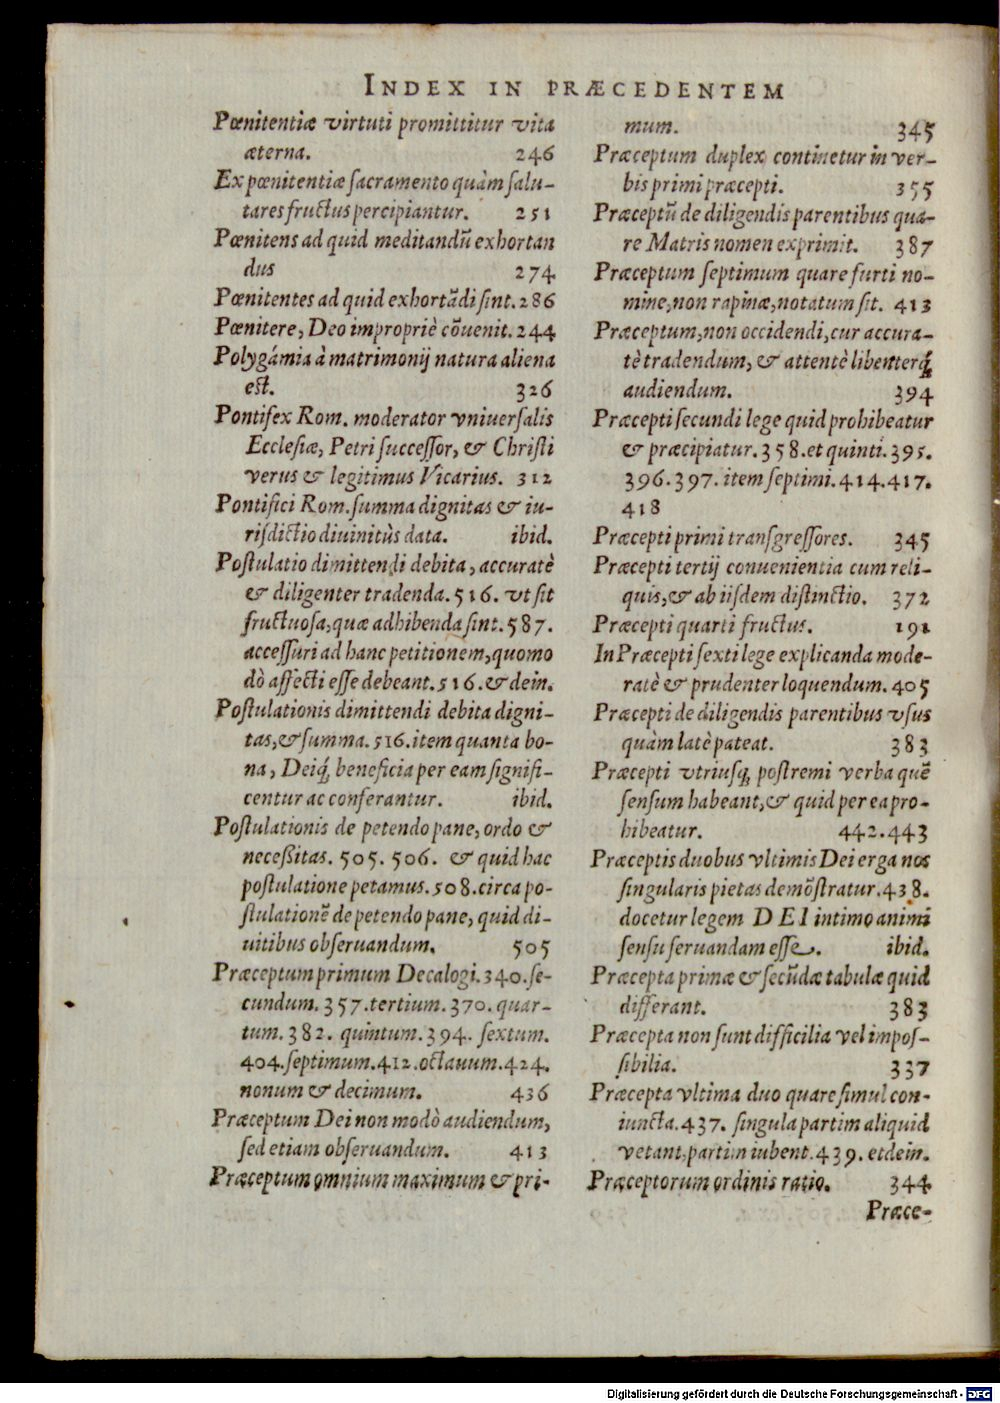 INDEX IN PRÆCEDENTEM
Pœnitentiæ virtuti promittitur vita
æterna. 246
Ex pœnitentiæ sacramento quàm salu-
tares fructus percipiantur. 251
Pœnitens ad quid meditandũ exhortan
dus 274
Pœnitentes ad quid exhortãdi sint. 286
Pœnitere, Deo impropriè cõuenit. 244
Polygámia à matrimonij natura aliena
est. 326
Pontifex Rom. moderator vniuersalis
Ecclesiæ, Petri successor, & Christi
verus & legitimus Vicarius. 312
Pontifici Rom. summa dignitas & iu-
risdictio diuinitùs data. ibid.
Postulatio dimittendi debita, accuratè
& diligenter tradenda. 516. vt sit
fructuosa, quæ adhibenda sint. 587.
accessuri ad hanc petitionem, quomo
dò affecti esse debeant. 516. & dein.
Postulationis dimittendi debita digni-
tas, & summa. 516. item quanta bo-
na, Deiq́; beneficia per eam signifi-
centur ac conferantur. ibid.
Postulationis de petendo pane, ordo &
necessitas. 505. 506. & quid hac
postulatione petamus. 508. circa po-
stulationẽ de petendo pane, quid di-
uitibus obseruandum. 505
Præceptum primum Decalogi. 340. se-
cundum. 357. tertium. 370. quar-
tum. 382. quintum. 394. sextum.
404. septimum. 412. octauum. 424.
nonum & decimum. 436
Præceptum Dei non modò audiendum,
sed etiam obseruandum. 413
Præceptum omnium maximum & pri-
mum. 345
Præceptum duplex continetur in ver-
bis primi præcepti. 355
Præceptũ de diligendis parentibus qua-
re Matris nomen exprimit. 387
Præceptum septimum quare furti no-
mine, non rapinæ, notatum sit. 413
Præceptum, non occidendi, cur accura-
tè tradendum, & attentè libenterq́;
audiendum. 394
Præcepti secundi lege quid prohibeatur
& præcipiatur. 358. et quinti. 395.
396. 397. item septimi. 414. 417.
418
Præcepti primi transgressores. 345
Præcepti tertij conuenientia cum reli-
quis, & ab iisdem distinctio. 372
Præcepti quarti fructus. 191
In Præcepti sexti lege explicanda mode-
ratè & prudenter loquendum. 405
Præcepti de diligendis parentibus vsus
quàm latè pateat. 383
Præcepti vtriusq; postremi verba quẽ
sensum habeant, & quid per ea pro-
hibeatur. 442. 443
Præceptis duobus vltimis Dei erga nos
singularis pietas demõstratur. 438.
docetur legem DEI intimo animi
sensu seruandam esse. ibid.
Præcepta primæ & secũdæ tabulæ quid
differant. 383
Præcepta non sunt difficilia vel impos-
sibilia. 337
Præcepta vltima duo quare simul con-
iuncta. 437. singula partim aliquid
vetant, partim iubent. 439. et dein.
Præceptorum ordinis ratio. 344
Præce-
Digitalisierung gefördert durch die Deutsche Forschungsgemeinschaft - DFG